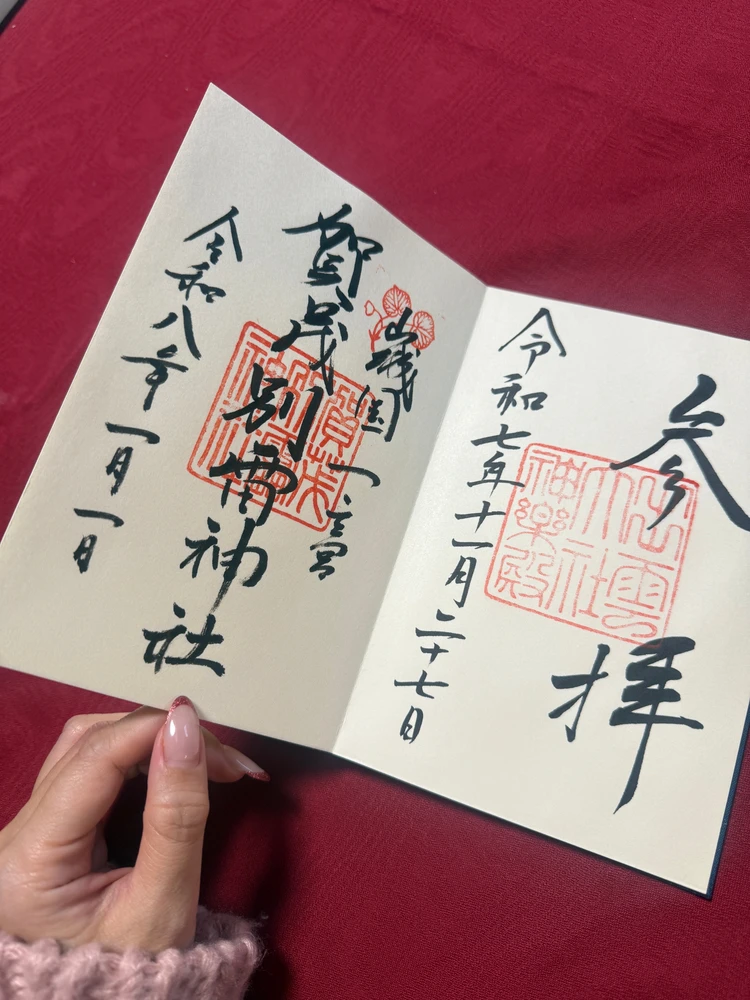 参拝
出雲大社神楽殿
令和七年十一月二十七日
山城国一之宮
賀茂別雷神社
令和八年一月一日